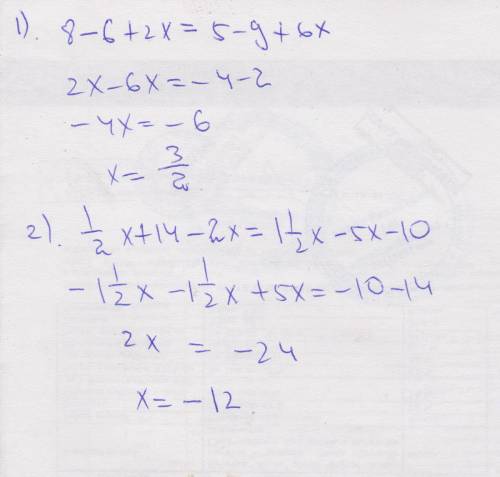 1). 8-6+2x=5-9+6x
2x-6x=-4-2
-4x=-6
x=3/2
2). 1/2 x+14-2x=1 1/2 x-5x-10
-1 1/2 x -1 1/2 x+5x=-10-14
2x = -24
x=-12